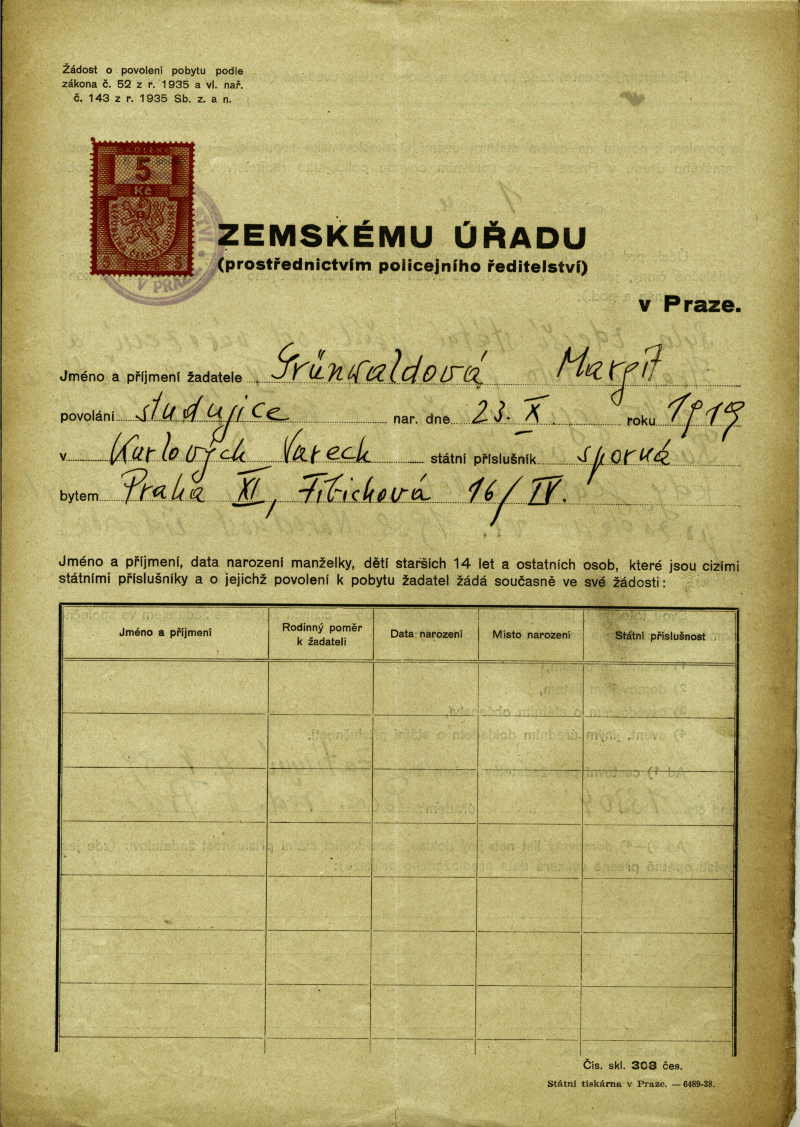 Žádost o povolení pobytu podle
zákona č. 52 z r. 1935 a vl. nař.
č. 143 z r. 1935 Sb. z. a n.
5
Kč
5 5
V PRAZE
ZEMSKÉMU ÚŘADU
(prostřednictvím policejního ředitelství)
v Praze.
Jméno a příjmení žadatele Grünwaldová Margit
povolání studujíce nar. dne 23. X. roku 1919
v Karlových Varech státní příslušník sporná
bytem Praha XI, Fibichová 16/IV.
Jméno a příjmení, data narození manželky, dětí starších 14 let a ostatních osob, které jsou cizími
státními příslušníky a o jejichž povolení k pobytu žadatel žádá současně ve své žádosti:
Jméno a příjmení Rodinný poměr k žadateli Data narození Místo narození Státní příslušnost
Čís. skl. 308 čes.
Státní tiskárna v Praze. — 6489-38.